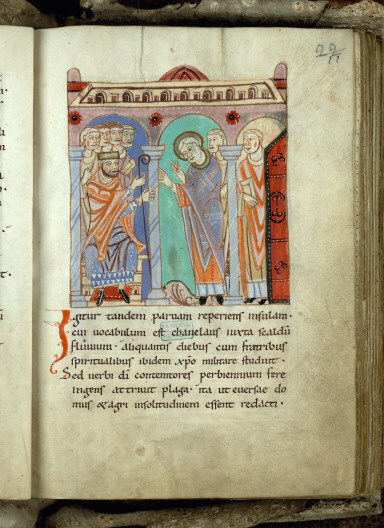 Igitur tandem paruam reperiens insulam.
cui uocabulum est chanelaus iuxta scaldũ
fluuium. aliquantis diebus cum fratribus
spiritualibus ibidem xp̃o militare studuit.
Sed uerbi dĩ contemtores per biennium fere
ingens attriuit plaga. ita ut euersae do
mus & agri insolitudinem essent redacti.